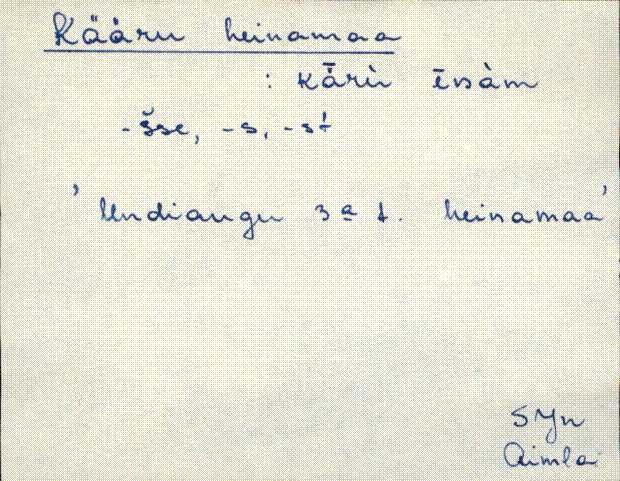 Kääru heinamaa
: kǟrù ēnàm
-šse, -s, -st
'Undiaugu 3ª t. heinamaa'
SJn
Aimla